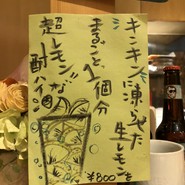 キンキンに凍らせた
生レモンを
まるごと1個分
超レモン!!が
酎ハイ
¥800